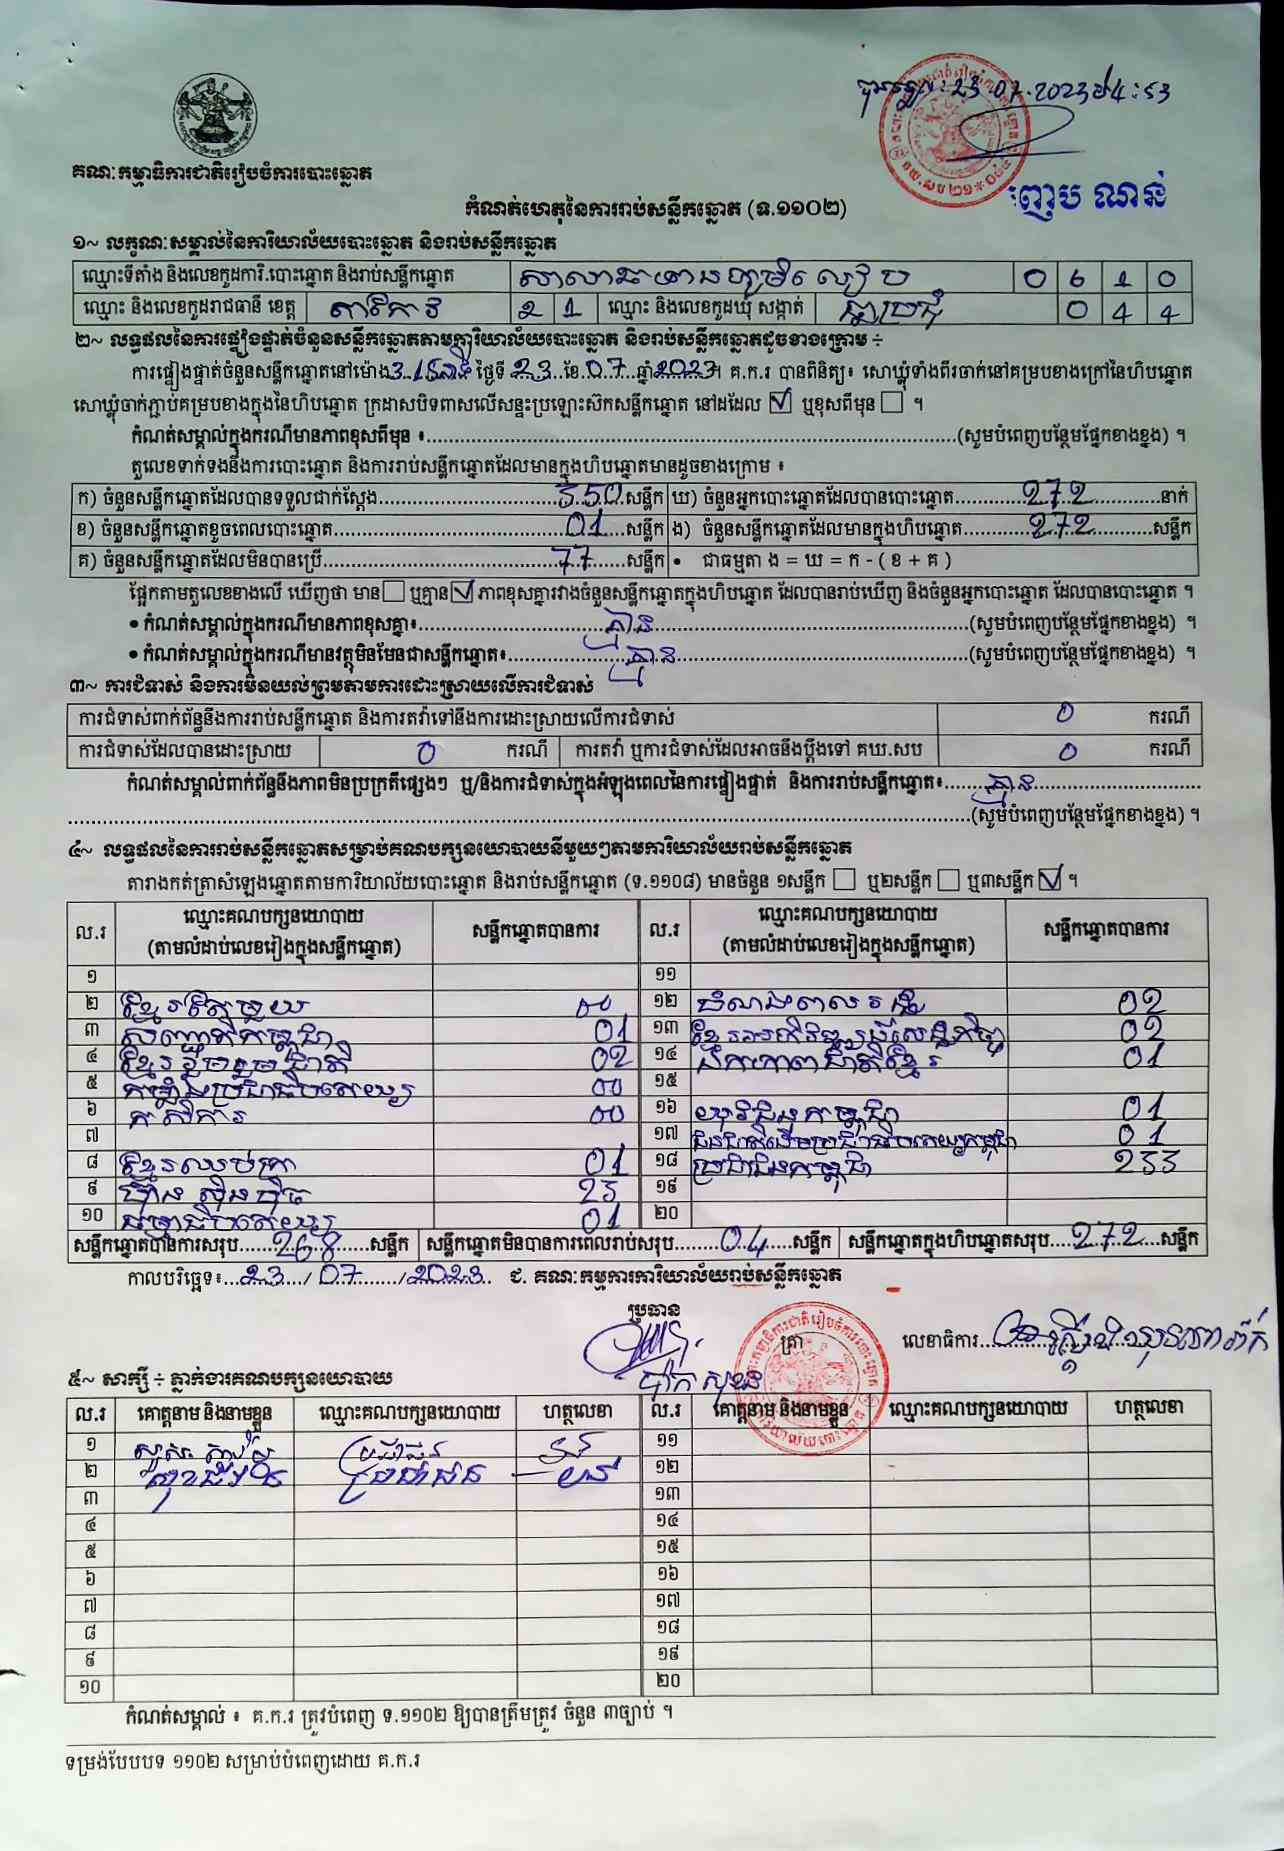 23.07.2023 14:53
គណៈកម្មាធិការជាតិរៀបចំការបោះឆ្នោត
ញេប ណន់
កំណត់ហេតុនៃការរាប់សន្លឹកឆ្នោត (ទ.១១០២)
១~ លក្ខណៈសម្គាល់នៃការិយាល័យបោះឆ្នោត និងរាប់សន្លឹកឆ្នោត
ឈ្មោះទីតាំង និងលេខកូដការិ.បោះឆ្នោត និងរាប់សន្លឹកឆ្នោត 0 6 1 0
ឈ្មោះ និងលេខកូដរាជធានី ខេត្ត តាកែវ 2 1 ឈ្មោះ និងលេខកូដឃុំ សង្កាត់ 0 4 4
២~ លទ្ធផលនៃការផ្ទៀងផ្ទាត់ចំនួនសន្លឹកឆ្នោតតាមការិយាល័យបោះឆ្នោត និងរាប់សន្លឹកឆ្នោតដូចខាងក្រោម ÷
ការផ្ទៀងផ្ទាត់ចំនួនសន្លឹកឆ្នោតនៅម៉ោង ថ្ងៃទី 23 ខែ 07 ឆ្នាំ 2023។ គ.ក.រ បានពិនិត្យ៖ សោឃ្លុំទាំងពីរចាក់នៅគម្របខាងក្រៅនៃហិបឆ្នោត
សោឃ្លុំចាក់ភ្ជាប់គម្របខាងក្នុងនៃហិបឆ្នោត ក្រដាសបិទពាសលើសន្ទះប្រឡោះស៊កសន្លឹកឆ្នោត នៅដដែល ☑ ឬខុសពីមុន ☐ ។
កំណត់សម្គាល់ក្នុងករណីមានភាពខុសពីមុន ៖..........(សូមបំពេញបន្ថែមផ្នែកខាងខ្នង) ។
តួលេខទាក់ទងនឹងការបោះឆ្នោត និងការរាប់សន្លឹកឆ្នោតដែលមានក្នុងហិបឆ្នោតមានដូចខាងក្រោម ៖
ក) ចំនួនសន្លឹកឆ្នោតដែលបានទទួលជាក់ស្តែង..........350 សន្លឹក ឃ) ចំនួនអ្នកបោះឆ្នោតដែលបានបោះឆ្នោត..........272 នាក់
ខ) ចំនួនសន្លឹកឆ្នោតខូចពេលបោះឆ្នោត..........01 សន្លឹក ង) ចំនួនសន្លឹកឆ្នោតដែលមានក្នុងហិបឆ្នោត..........272 សន្លឹក
គ) ចំនួនសន្លឹកឆ្នោតដែលមិនបានប្រើ..........77 សន្លឹក • ជាធម្មតា ង = ឃ = ក - ( ខ + គ )
ផ្អែកតាមតួលេខខាងលើ ឃើញថា មាន ☐ ឬគ្មាន ☑ ភាពខុសគ្នារវាងចំនួនសន្លឹកឆ្នោតក្នុងហិបឆ្នោត ដែលបានរាប់ឃើញ និងចំនួនអ្នកបោះឆ្នោត ដែលបានបោះឆ្នោត ។
• កំណត់សម្គាល់ក្នុងករណីមានភាពខុសគ្នា៖..........គ្មាន..........(សូមបំពេញបន្ថែមផ្នែកខាងខ្នង) ។
• កំណត់សម្គាល់ក្នុងករណីមានវត្ថុមិនមែនជាសន្លឹកឆ្នោត៖..........គ្មាន..........(សូមបំពេញបន្ថែមផ្នែកខាងខ្នង) ។
៣~ ការជំទាស់ និងការមិនយល់ព្រមតាមការដោះស្រាយលើការជំទាស់
ការជំទាស់ពាក់ព័ន្ធនឹងការរាប់សន្លឹកឆ្នោត និងការតវ៉ាទៅនឹងការដោះស្រាយលើការជំទាស់ 0 ករណី
ការជំទាស់ដែលបានដោះស្រាយ 0 ករណី ការតវ៉ា ឬការជំទាស់ដែលអាចនឹងប្តឹងទៅ គឃ.សប 0 ករណី
កំណត់សម្គាល់ពាក់ព័ន្ធនឹងភាពមិនប្រក្រតីផ្សេងៗ ឬ/និងការជំទាស់ក្នុងអំឡុងពេលនៃការផ្ទៀងផ្ទាត់ និងការរាប់សន្លឹកឆ្នោត៖..........គ្មាន..........
..........(សូមបំពេញបន្ថែមផ្នែកខាងខ្នង) ។
៤~ លទ្ធផលនៃការរាប់សន្លឹកឆ្នោតសម្រាប់គណបក្សនយោបាយនីមួយៗតាមការិយាល័យរាប់សន្លឹកឆ្នោត
តារាងកត់ត្រាសំឡេងឆ្នោតតាមការិយាល័យបោះឆ្នោត និងរាប់សន្លឹកឆ្នោត (ទ.១១០៨) មានចំនួន ១សន្លឹក ☐ ឬ២សន្លឹក ☐ ឬ៣សន្លឹក ☑ ។
ល.រ ឈ្មោះគណបក្សនយោបាយ (តាមលំដាប់លេខរៀងក្នុងសន្លឹកឆ្នោត) សន្លឹកឆ្នោតបានការ ល.រ ឈ្មោះគណបក្សនយោបាយ (តាមលំដាប់លេខរៀងក្នុងសន្លឹកឆ្នោត) សន្លឹកឆ្នោតបានការ
១ ១១
២ ខ្មែរតែមួយ 00 ១២ 02
៣ សញ្ជាតិកម្ពុជា 01 ១៣ 02
៤ ខ្មែររួបរួមជាតិ 02 ១៤ ឯកភាពជាតិខ្មែរ 01
៥ កម្លាំងប្រជាធិបតេយ្យ 00 ១៥
៦ កសិករ 00 ១៦ យុវជនកម្ពុជា 01
៧ ១៧ ជនជាតិដើមប្រជាធិបតេយ្យកម្ពុជា 01
៨ ខ្មែរឈប់ក្រ 01 ១៨ ប្រជាជនកម្ពុជា 233
៩ ហ្វ៊ុនស៊ិនប៉ិច 23 ១៩
១០ ធម្មាធិបតេយ្យ 01 ២០
សន្លឹកឆ្នោតបានការសរុប..........268 សន្លឹក សន្លឹកឆ្នោតមិនបានការពេលរាប់សរុប..........04 សន្លឹក សន្លឹកឆ្នោតក្នុងហិបឆ្នោតសរុប..........272 សន្លឹក
កាលបរិច្ឆេទ៖ 23 / 07 / 2023 ជ. គណៈកម្មការការិយាល័យរាប់សន្លឹកឆ្នោត
ប្រធាន
ត្រា លេខាធិការ
៥~ សាក្សី ÷ ភ្នាក់ងារគណបក្សនយោបាយ
ល.រ គោត្តនាម និងនាមខ្លួន ឈ្មោះគណបក្សនយោបាយ ហត្ថលេខា ល.រ គោត្តនាម និងនាមខ្លួន ឈ្មោះគណបក្សនយោបាយ ហត្ថលេខា
១ ប្រជាជន ១១
២ ប្រជាជន ១២
៣ ១៣
៤ ១៤
៥ ១៥
៦ ១៦
៧ ១៧
៨ ១៨
៩ ១៩
១០ ២០
កំណត់សម្គាល់ ៖ គ.ក.រ ត្រូវបំពេញ ទ.១១០២ ឱ្យបានត្រឹមត្រូវ ចំនួន ៣ច្បាប់ ។
ទម្រង់បែបបទ ១១០២ សម្រាប់បំពេញដោយ គ.ក.រ